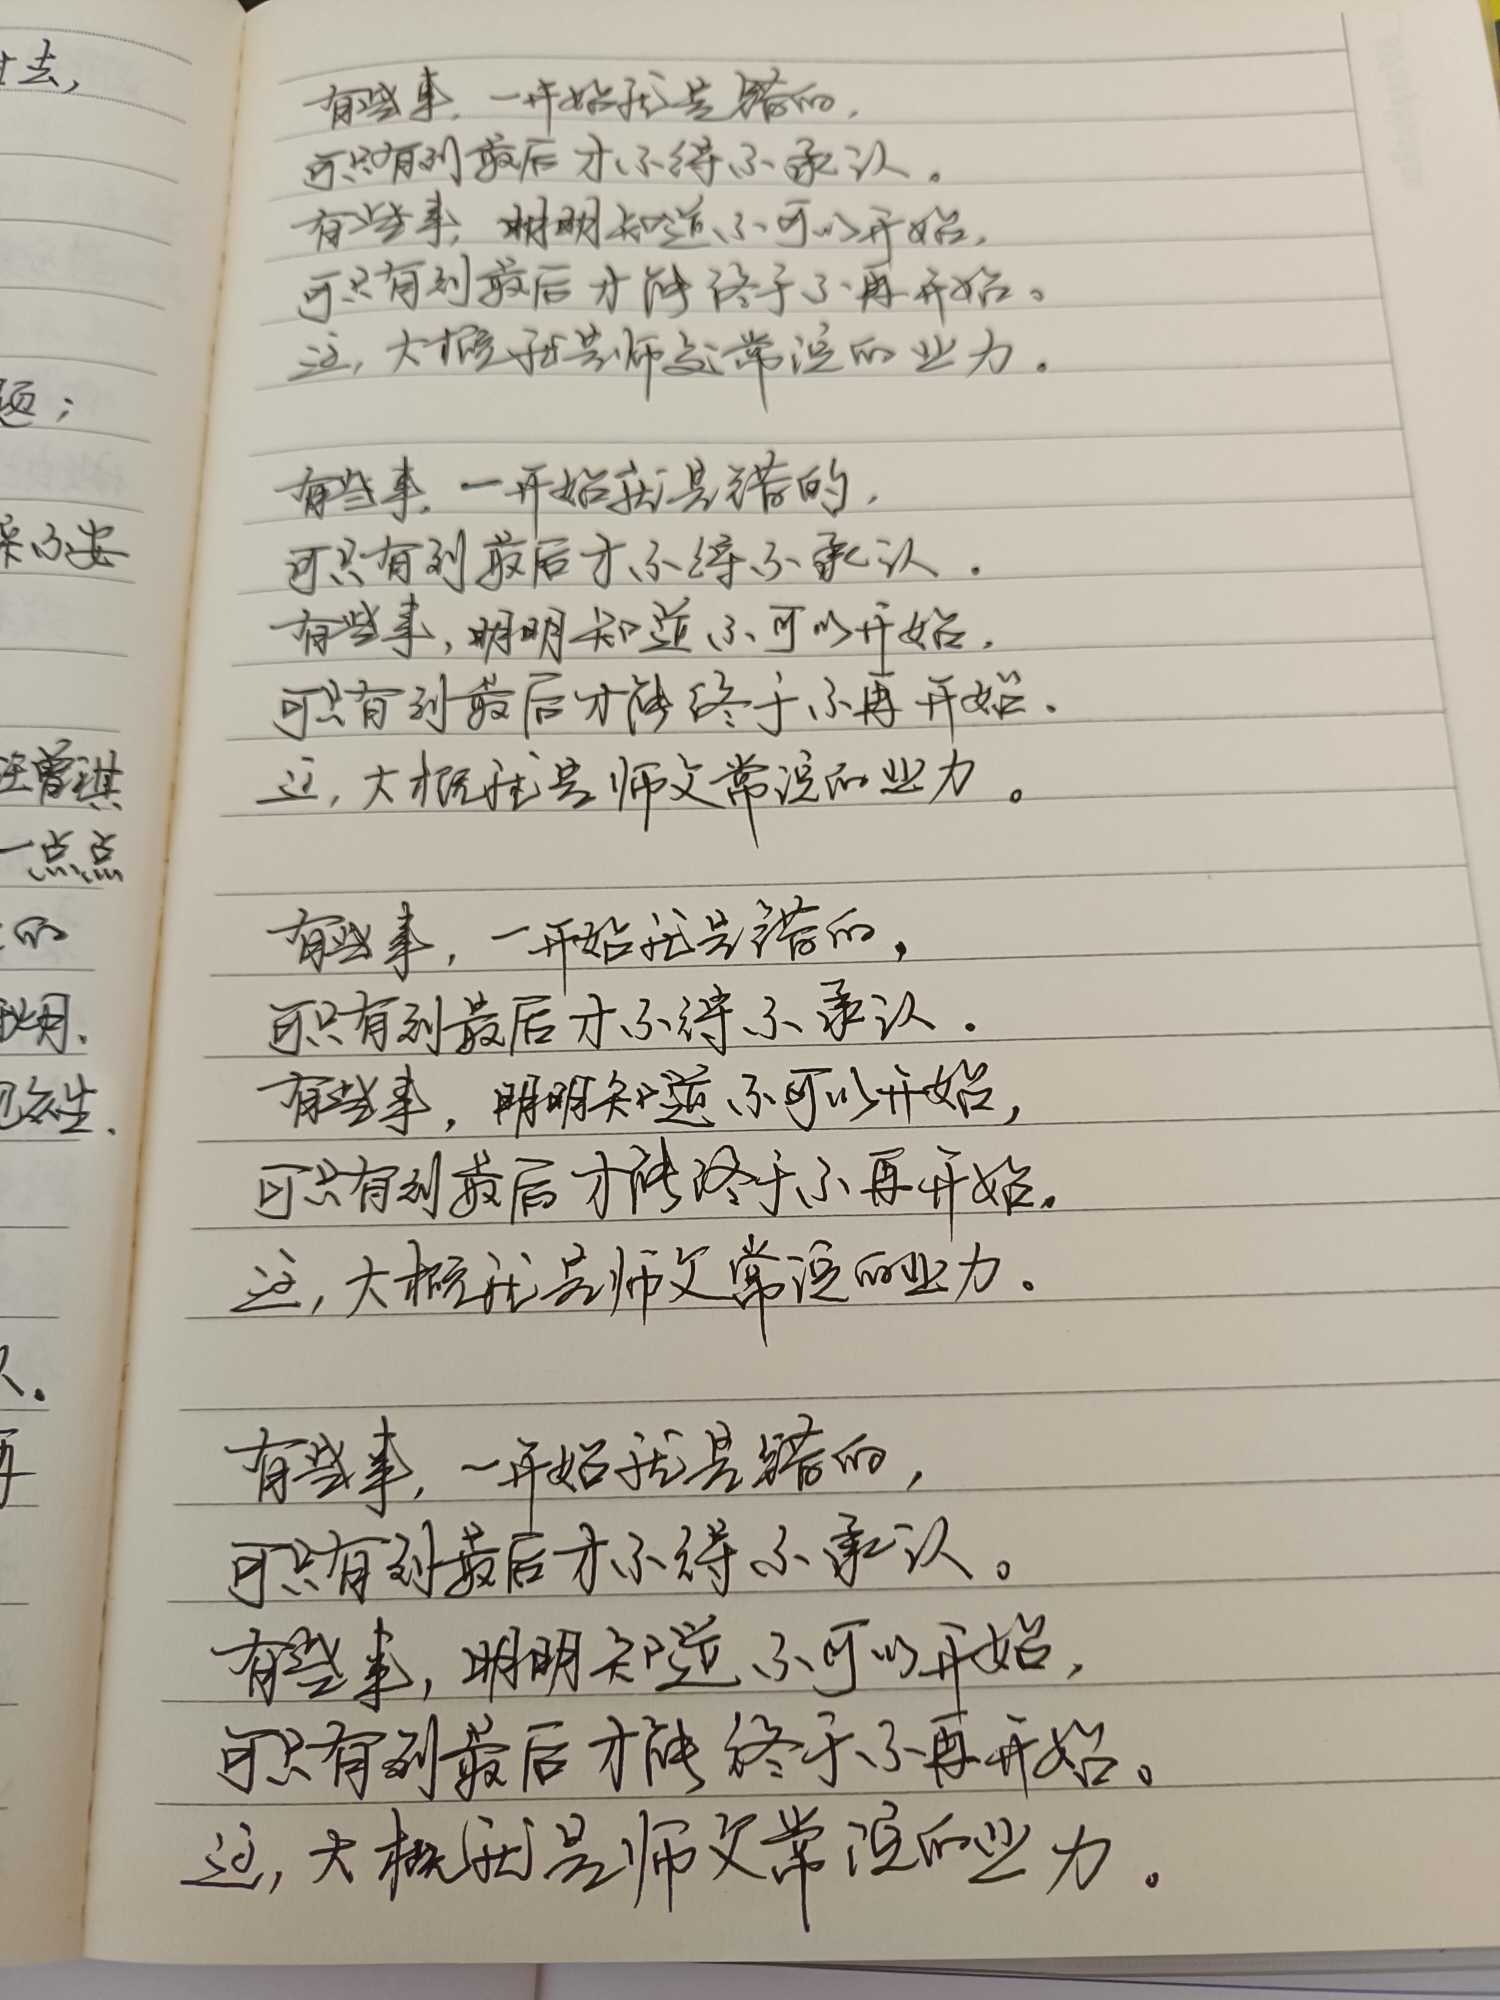 去,
题;
不安
汪曾祺
一点点
的
明.
众生.
人.
再
有些事,一开始就是错的,
可只有到最后才不得不承认。
有些事,明明知道不可以开始,
可只有到最后才能终于不再开始。
这,大概就是师父常说的业力。
有些事,一开始就是错的,
可只有到最后才不得不承认.
有些事,明明知道不可以开始,
可只有到最后才能终于不再开始.
这,大概就是师父常说的业力。
有些事,一开始就是错的,
可只有到最后才不得不承认.
有些事,明明知道不可以开始,
可只有到最后才能终于不再开始.
这,大概就是师父常说的业力.
有些事,一开始就是错的,
可只有到最后才不得不承认。
有些事,明明知道不可以开始,
可只有到最后才能终于不再开始。
这,大概就是师父常说的业力.